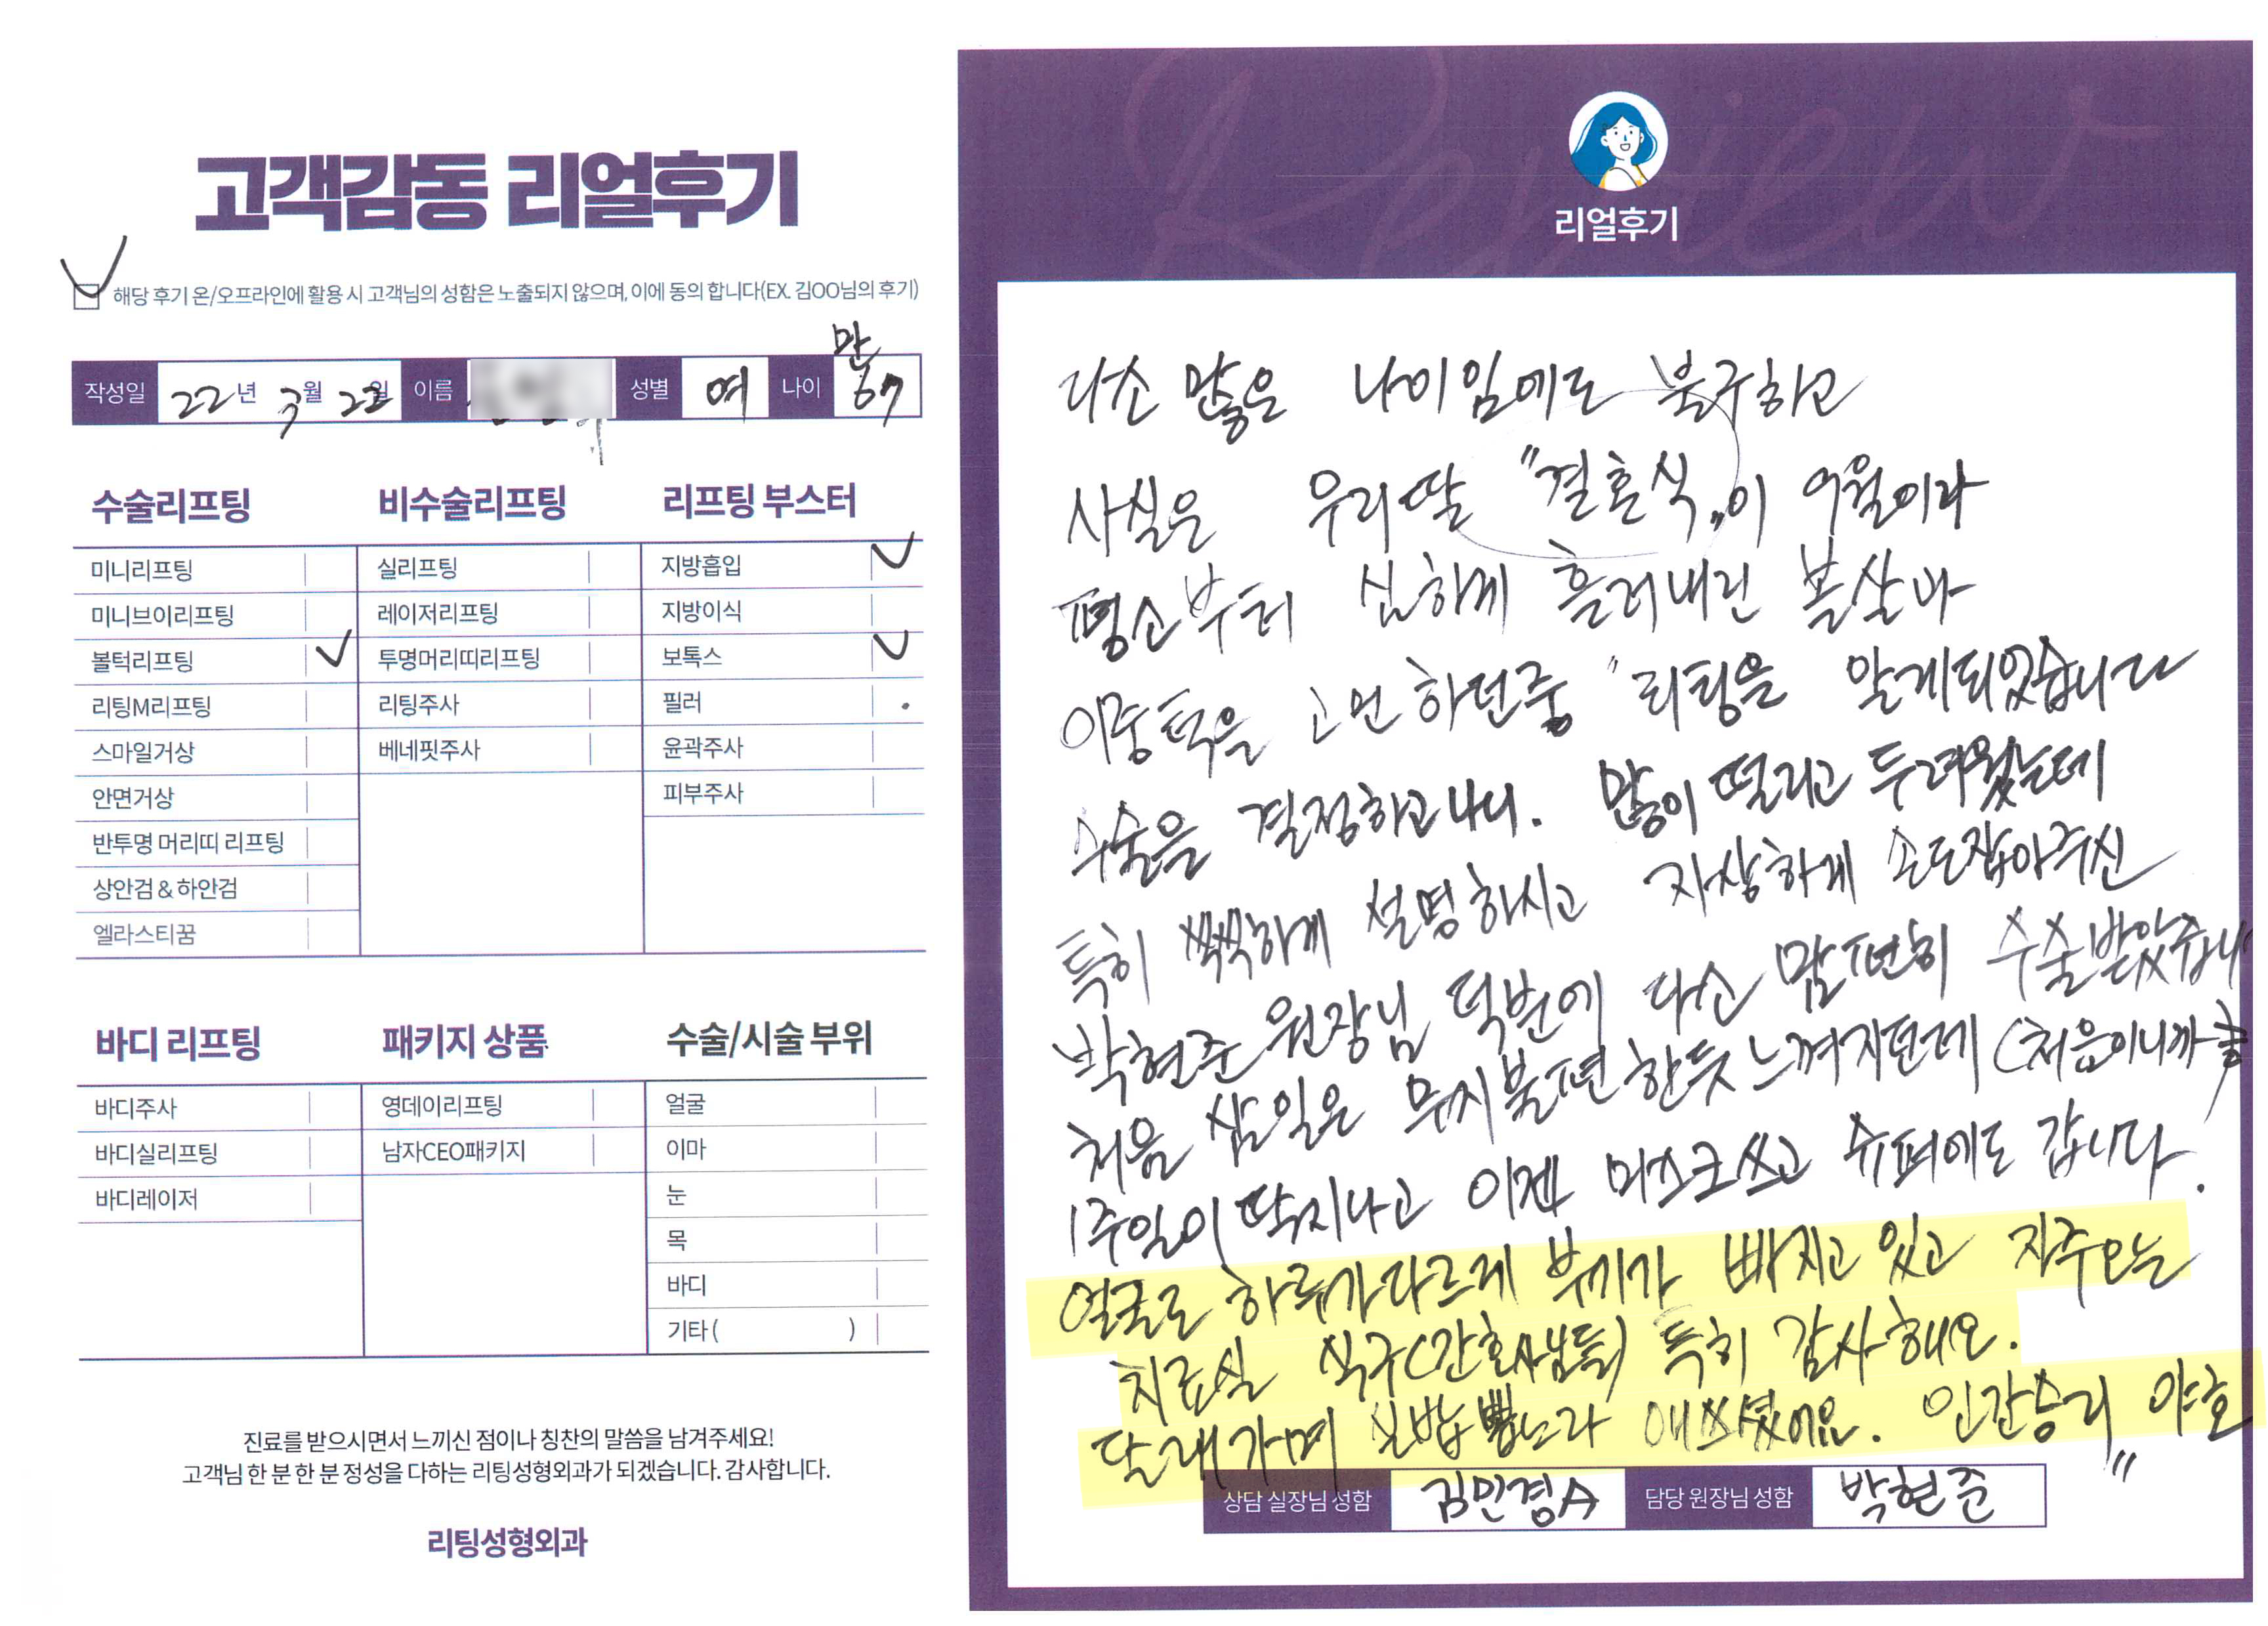 고객감동 리얼후기
해당 후기 온/오프라인에 활용 시 고객님의 성함은 노출되지 않으며, 이에 동의 합니다(EX. 김OO님의 후기)
만
작성일 22년 3월 23일 이름 성별 여 나이 67
수술리프팅
미니리프팅
미니브이리프팅
볼턱리프팅
리팅M리프팅
스마일거상
안면거상
반투명 머리띠 리프팅
상안검 & 하안검
엘라스티꿈
비수술리프팅
실리프팅
레이저리프팅
투명머리띠리프팅
리팅주사
베네핏주사
리프팅 부스터
지방흡입
지방이식
보톡스
필러
윤곽주사
피부주사
바디 리프팅
바디주사
바디실리프팅
바디레이저
패키지 상품
영데이리프팅
남자CEO패키지
수술/시술 부위
얼굴
이마
눈
목
바디
기타 ( )
진료를 받으시면서 느끼신 점이나 칭찬의 말씀을 남겨주세요!
고객님 한 분 한 분 정성을 다하는 리팅성형외과가 되겠습니다. 감사합니다.
리팅성형외과
Review
리얼후기
다소 많은 나이임에도 불구하고
사실은 우리딸 "결혼식"이 9월이라
평소부터 심하게 흘러내린 볼살과
이중턱을 고민하던중 "리팅을 알게되었습니다
수술을 결정하고나니. 많이 떨리고 두려웠는데
특히 씩씩하게 설명하시고 자상하게 손도잡아주신
박현준 원장님 덕분에 다소 맘편히 수술받았습니
처음 삼일은 무지불편한듯 느껴지던데 (처음이니까
1주일이 딱지나고 이젠 마스크쓰고 슈퍼에도 갑니다.
얼굴로 하루가다르게 부기가 빠지고 있고 자주오는
치료실 식구(간호사님들) 특히 감사해요.
달래가며 실밥 뽑느라 애쓰셨어요. 인간승리" 야호
상담 실장님 성함 김민경A 담당 원장님 성함 박현준